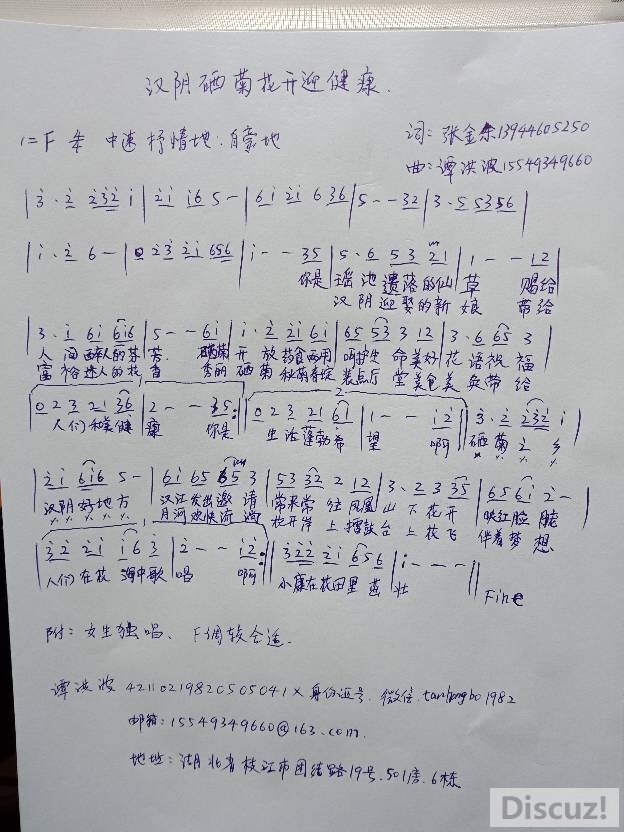 汉阴硒菊花开迎健康.
1=F 4/4 中速 抒情地.自豪地
词:张金余13944605250
曲:谭洪波15549349660
|3·2 2321|21 16 5-|61 21 6 36|5--32|3·5 5356|
|1·2 6-|0 23 21 656|1--35|5·6 53 21|1--12|
你是 瑶池遗落的仙草 赐给
汉阴迎娶的新娘 带给
|3·1 61 616|5--61|1·2 21 61|65 53 3 12|3·6 65 3|
人间醉人的芬芳. 硒菊开放药食两用呵护生命美好花语祝福
富裕迷人的花香 秀丽硒菊
0 2 3 21 36|2--35:|0 2 3 21 61|1--12|3·2 2321|
人们和美健康 你是 生活蓬勃希望 啊 硒菊之乡
|21 616 5-|61 65 65 3|53 32 2 12|3·2 3 35|65 61 2-|
汉阴好地方 汉江发出邀请 常来常往凤凰山下花开映红脸庞
月河欢快流淌 上擂鼓台上放飞伴着梦想
|32 21 16 3|2--12:||322 21 656|1---||
人们在花海中歌唱 啊 小康在花田里茁壮 Fine
附:女生独唱、F调较合适.
谭洪波 42110219820505041X身份证号.微信.tanhongbo1982
邮箱:15549349660@163.com.
地址:湖北省枝江市团结路19号.501房.6栋
Discuz!